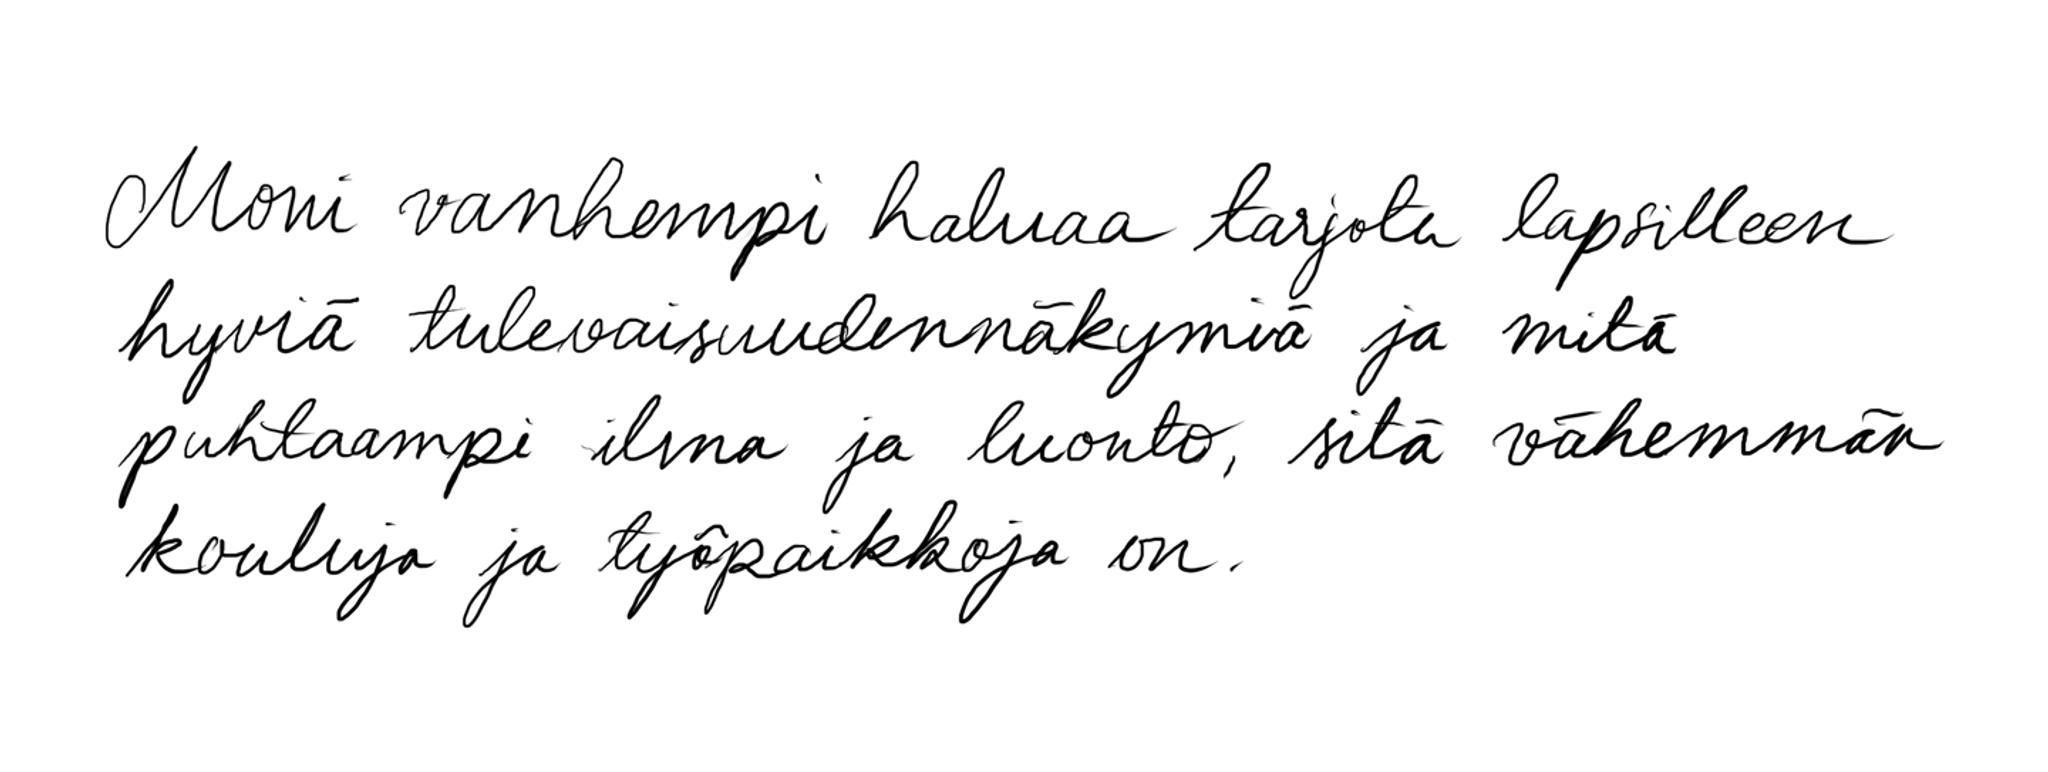 Moni vanhempi haluaa tarjota lapsilleen
hyviä tulevaisuudennäkymiä ja mitä
puhtaampi ilma ja luonto, sitä vähemmän
kouluja ja työpaikkoja on.